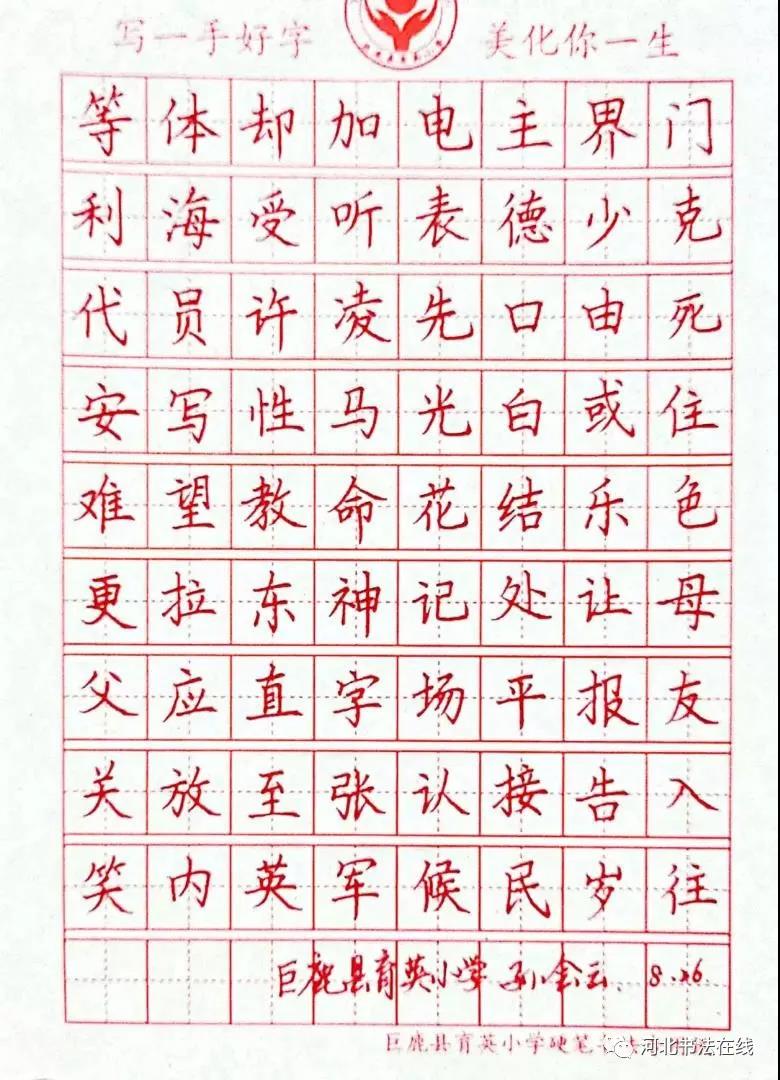 写一手好字 美化你一生
等体却加电主界门
利海受听表德少克
代员许凌先口由死
安写性马光白或住
难望教命花结乐色
更拉东神记处让母
父应直字场平报友
关放至张认接告入
笑内英军候民岁往
巨鹿县育英小学 孙金云 8.26
巨鹿县育英小学硬笔书法
河北书法在线